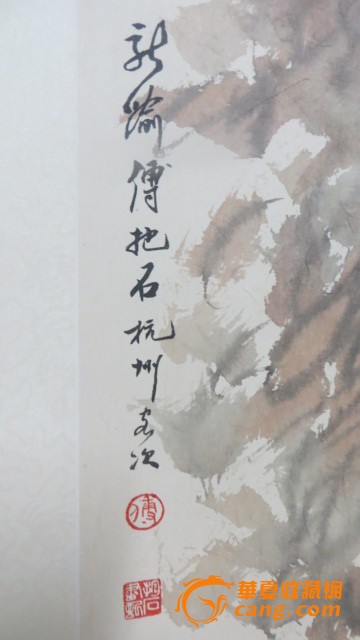 新喻傅抱石杭州客次
傅
華夏收藏网
cang.com